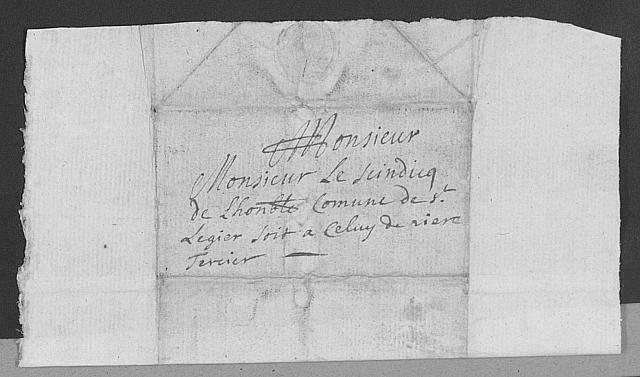 Monsieur
Monsieur Le Scindicq
de Lhonble Comune de st
Legier soit a Celuy de riere
Tercier